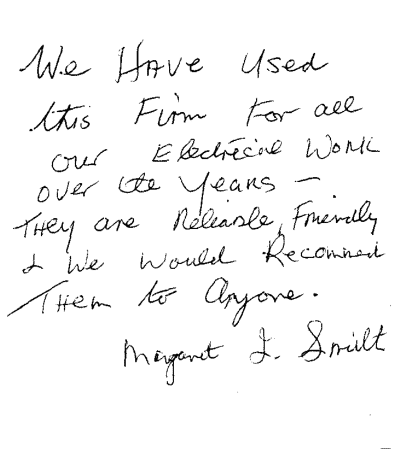 We Have Used
this Firm For all
our Electrical Work
over the Years -
They are Reliable, Friendly
& We would Recommend
Them to Anyone.
Margaret I. Smith